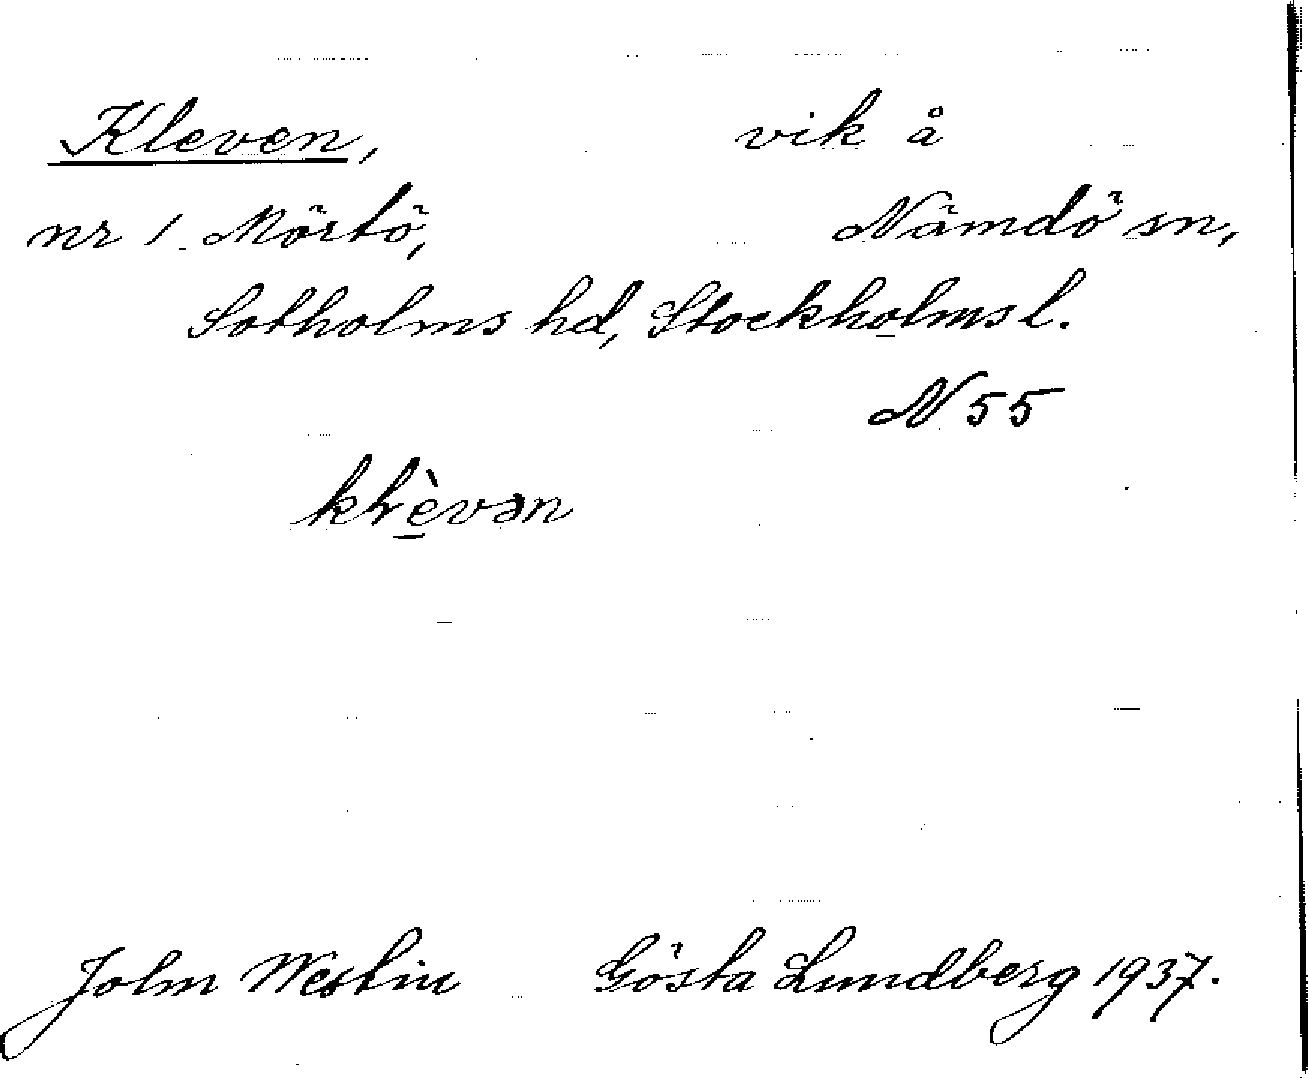 Kleven, vik å
nr 1 Mörtö, Nämdö sn,
Sotholms hd, Stockholms l.
N 55
John Westin Gösta Lundberg 1937.